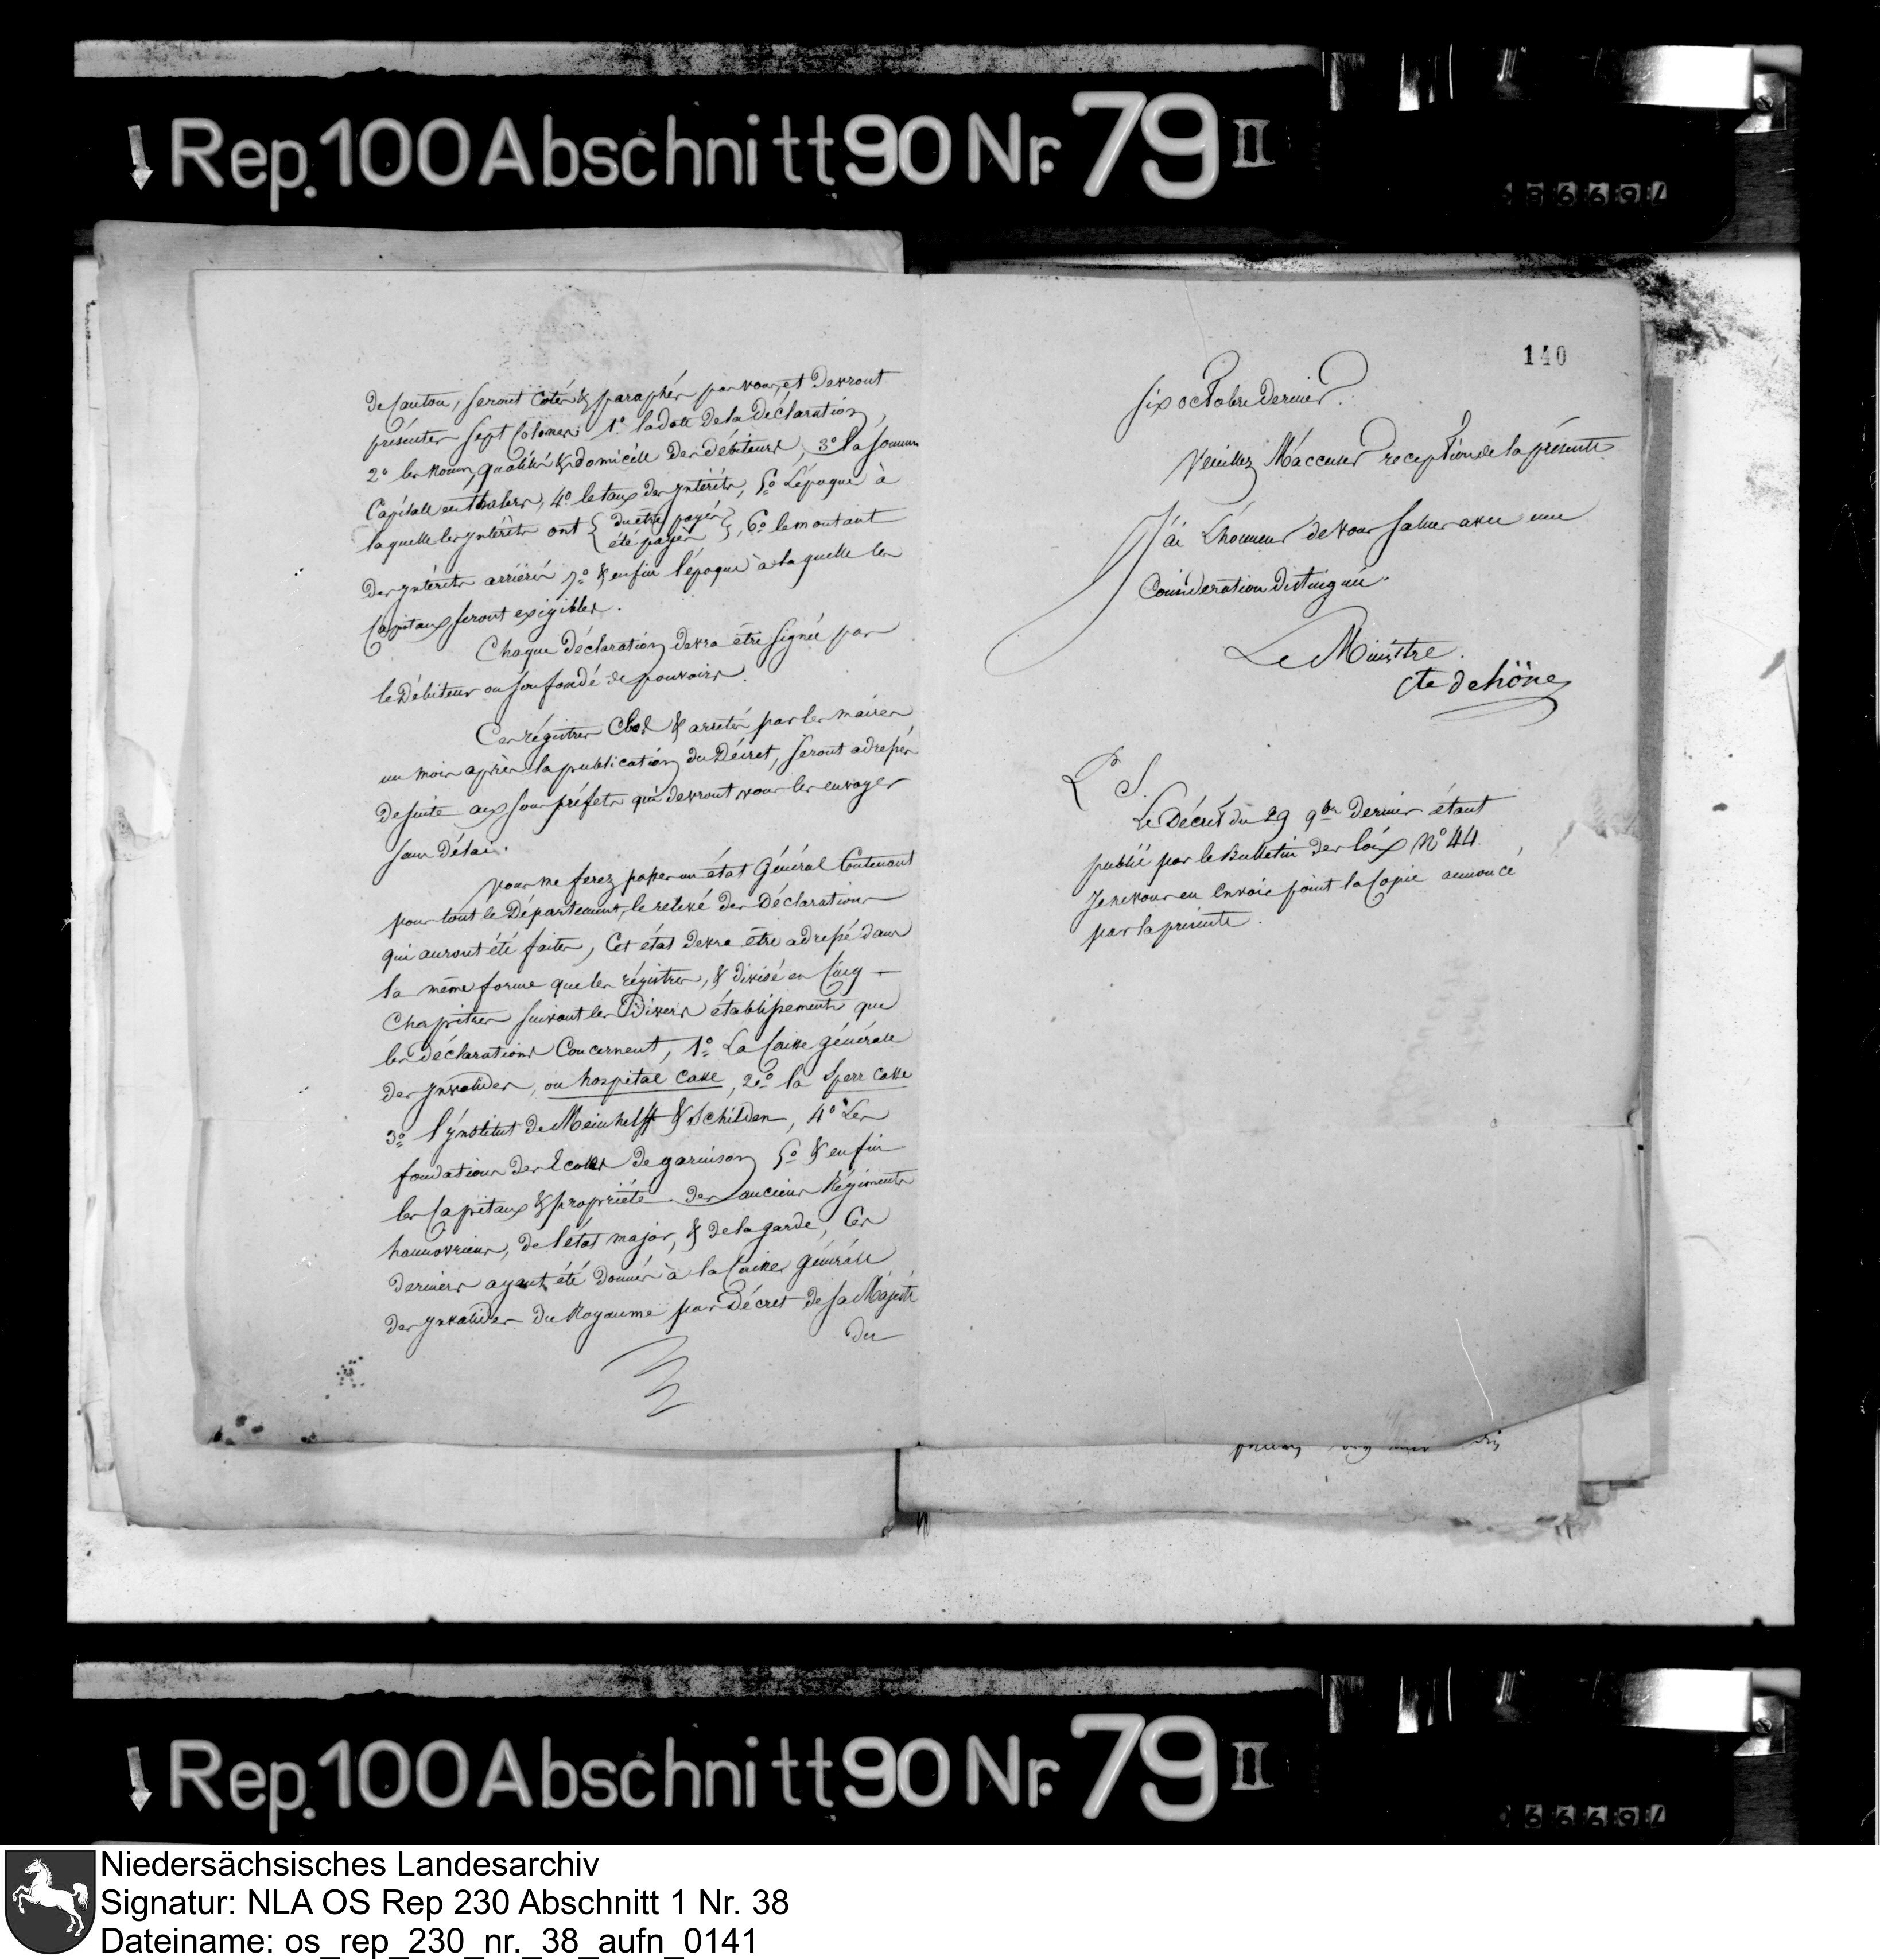 Rep. 100 Abschnitt 90 Nr. 79 II
de Canton, seront cotés & paraphés par vous, et devront
présenter sept Colones 1.º la date de la déclaration,
2º les noms, qualités & domicile des débiteurs, 3º la somme
Capitale en thalers, 4º le taux des ynterêts, 5º L'époque à
laquelle les ynterêts ont { du être payés
été payés }, 6º le montant
des ynterêts arriérés 7º & enfin l'époque à laquelle les
Capitaux seront exigibles.
Chaque déclaration devra être signée par
le Débiteur ou son fondé de pouvoirs.
Ces régistres Clos & arretés par les maires
un mois après la publication du Décret, seront adressés
de suite aux sous préfets qui devront vous les envoyer
sans délai.
Vous me ferez passer un état Général Contenant
pour tout le Département, le relevé des Déclarations
qui auront été faites, Cet état devra être adressé dans
la même forme que les régistres, & divisé en Cinq
Chapitres suivant les divers établissements que
les déclarations Concernent, 1º La Caisse générale
des ynvalides, ou hospital casse, 2º la Sperr casse
3º l'ynstitut de Meinhelff & Schilden, 4º Les
fondations des Ecoles de garnison 5º & enfin
les Capitaux & propriété des anciens Régiments
hannovriens, de l'état major, & de la garde, Ces
derniers ayant été donnés à la Caisse générale
des ynvalides du Royaume par Décret de sa Majesté
du
140
six octobre dernier.
Veuillez M'accuser reception de la présente
J'ai L'honneur de vous saluer avec une
Consideration distinguée.
Le Ministre.
Cte de höne
P. S.
Le Décret du 29 9bre dernier étant
publié par le Bulletin des loix Nº 44
Je ne vous en envoie point la Copie annoncé
par la présente.
Rep. 100 Abschnitt 90 Nr. 79 II
Niedersächsisches Landesarchiv
Signatur: NLA OS Rep 230 Abschnitt 1 Nr. 38
Dateiname: os_rep_230_nr._38_aufn_0141